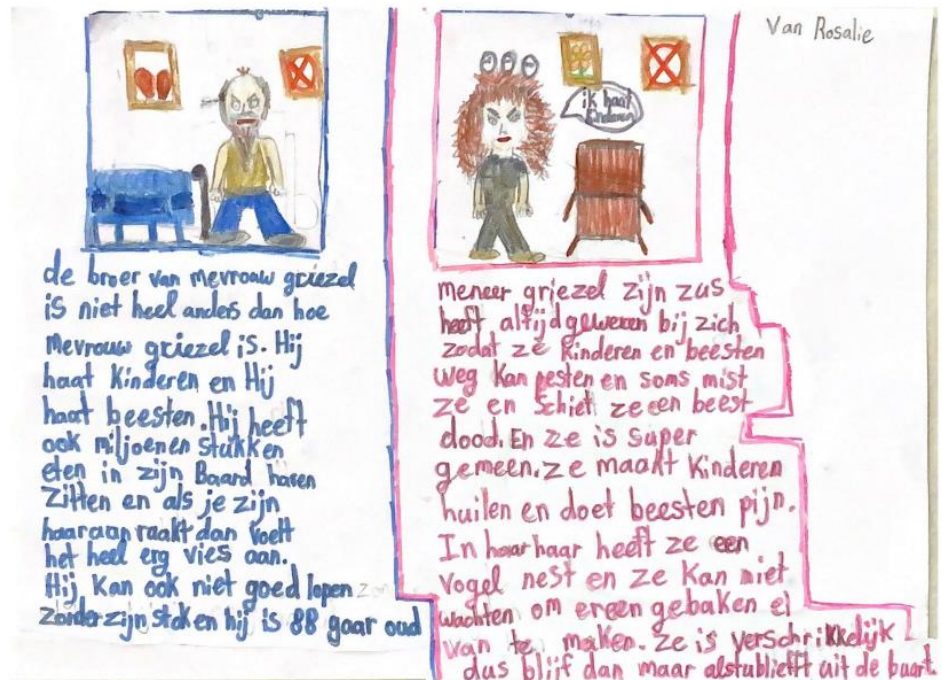 Van Rosalie
ik haat
kinderen
de broer van mevrouw griezel
is niet heel anders dan hoe
mevrouw griezel is. Hij
haat kinderen en Hij
haat beesten. Hij heeft
ook miljoenen stukken
eten in zijn Baard haren
zitten en als je zijn
haar aan raakt dan voelt
het heel erg vies aan.
Hij kan ook niet goed lopen
zonder zijn stok en hij is 88 gaar oud
meneer griezel zijn zus
heeft altijd geweren bij zich
zodat ze kinderen en beesten
weg kan pesten en soms mist
ze en schiet ze een beest
dood. En ze is super
gemeen. ze maakt kinderen
huilen en doet beesten pijn.
In haar haar heeft ze een
vogel nest en ze kan niet
wachten om er een gebaken ei
van te maken. ze is verschrikkelijk
dus blijf dan maar alstublieft uit de buurt.